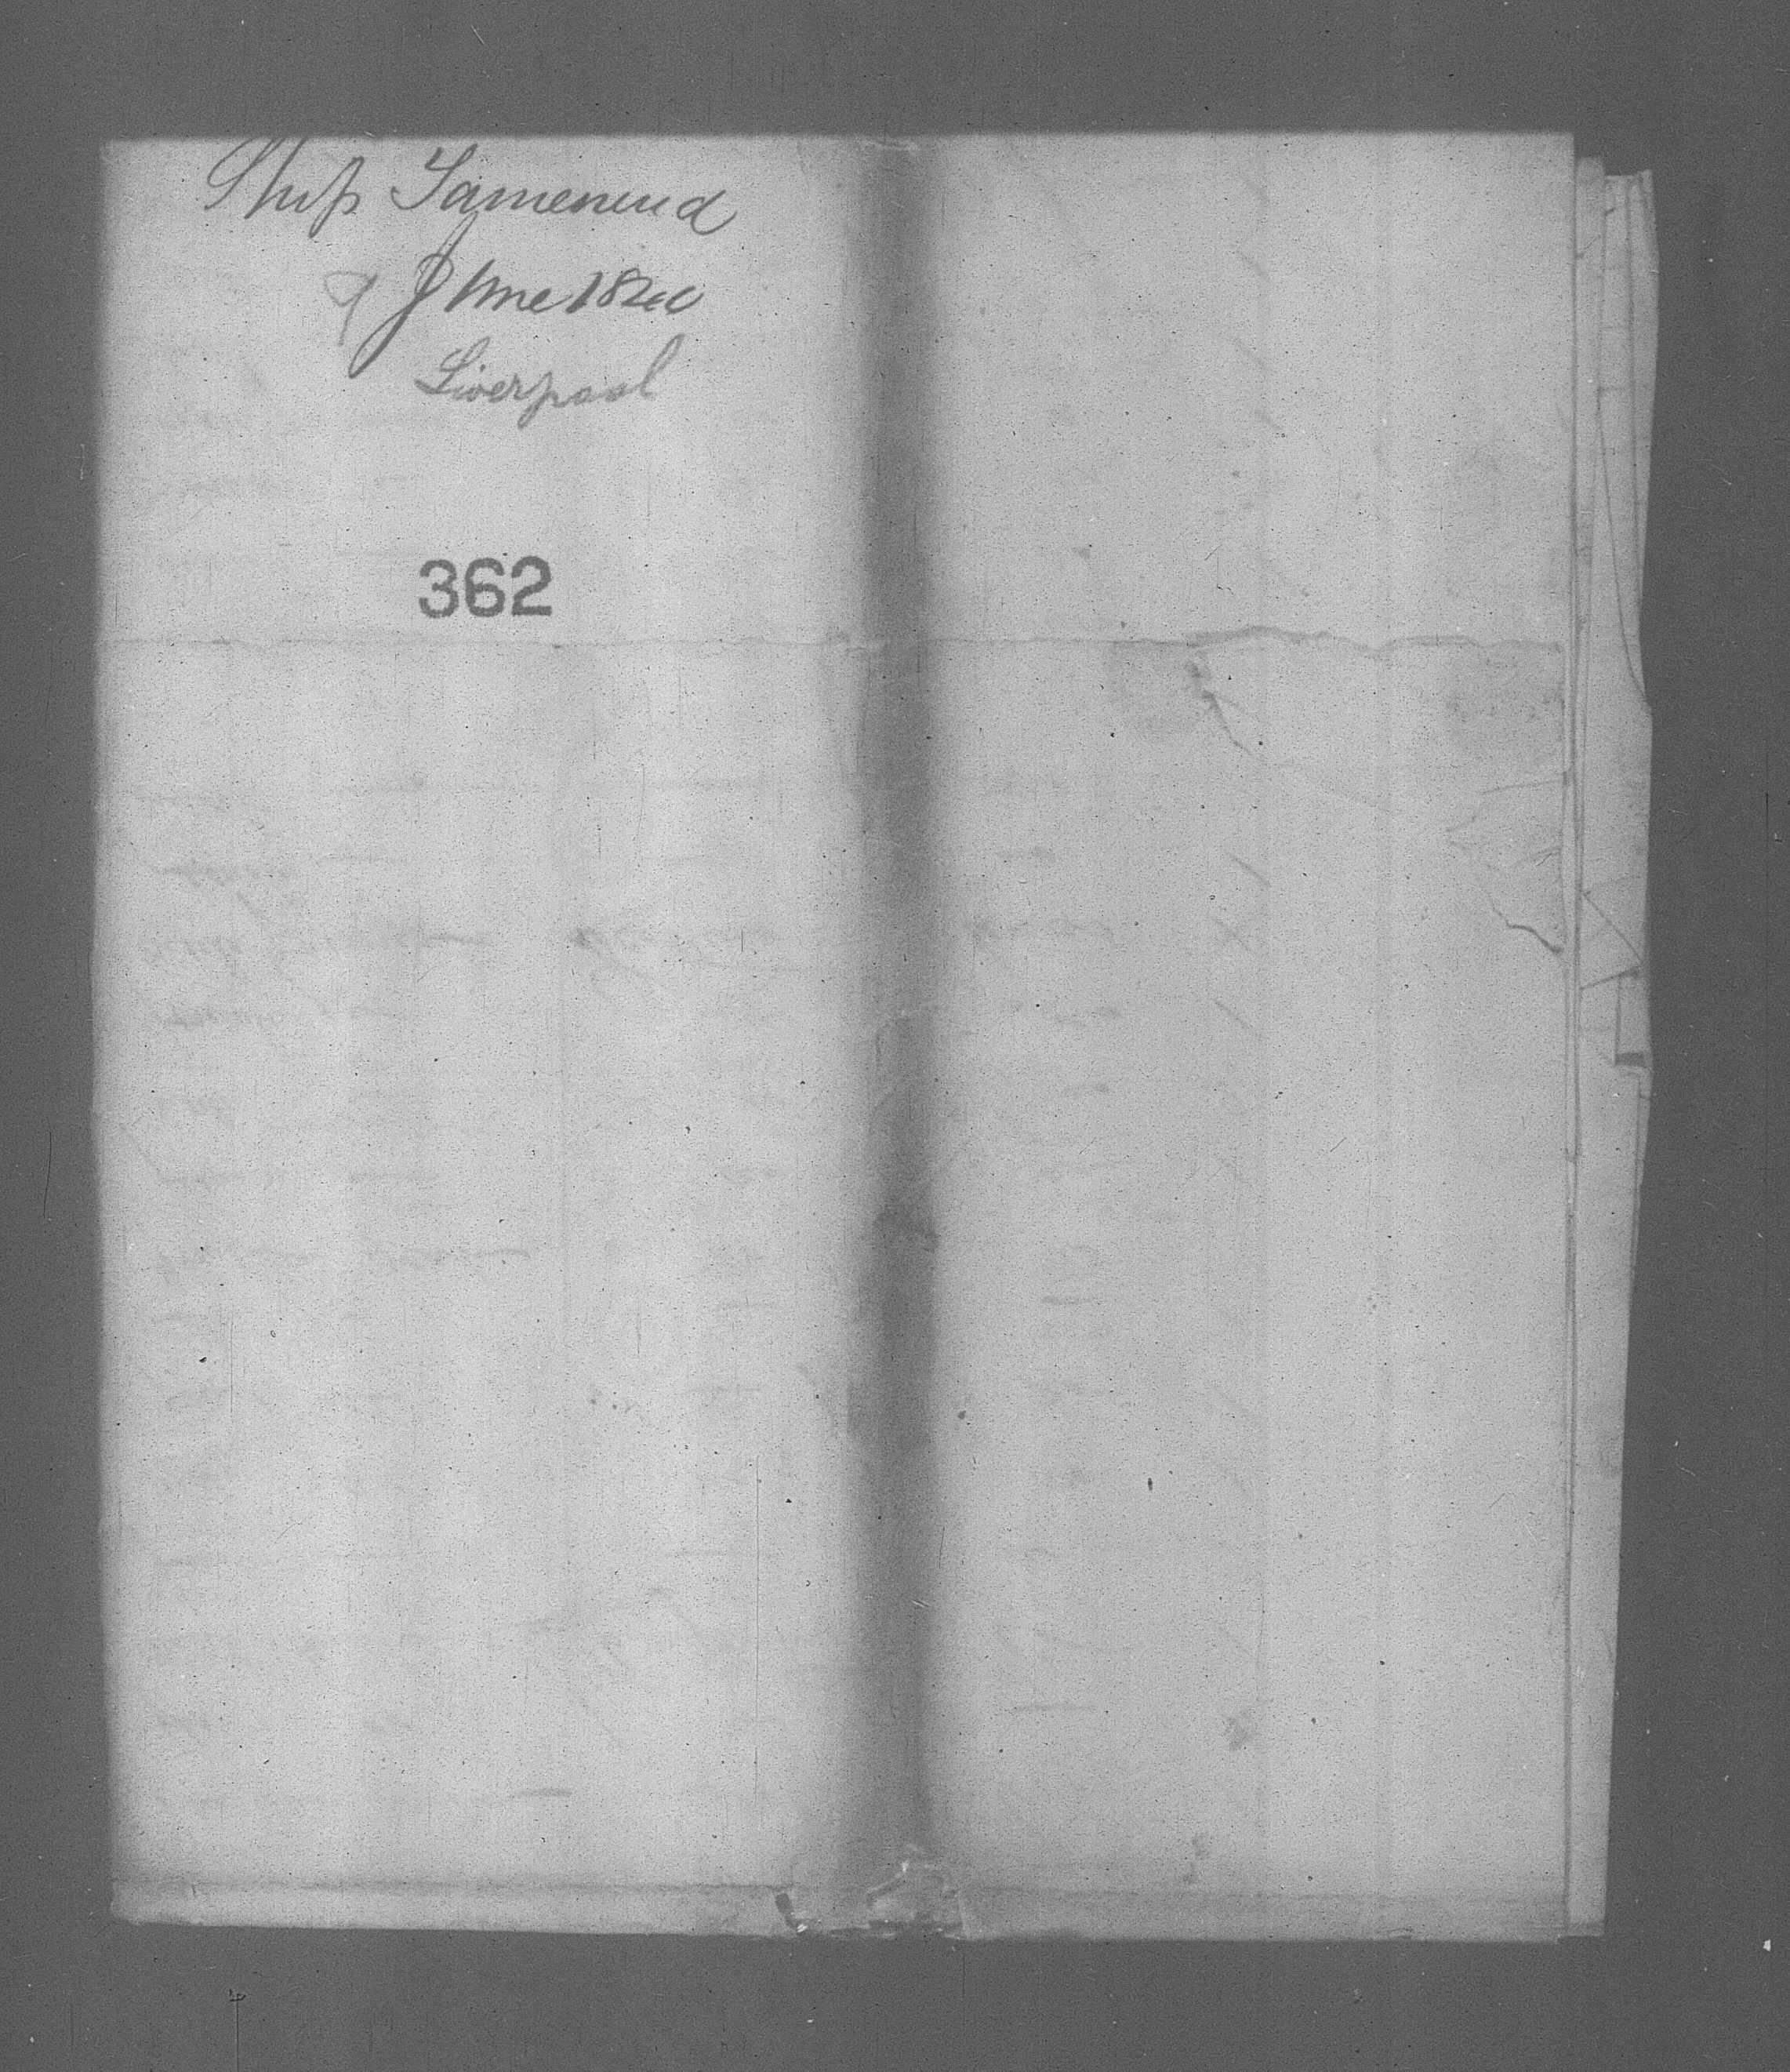 Ship Tamenend
9 June 1840
Liverpool
362